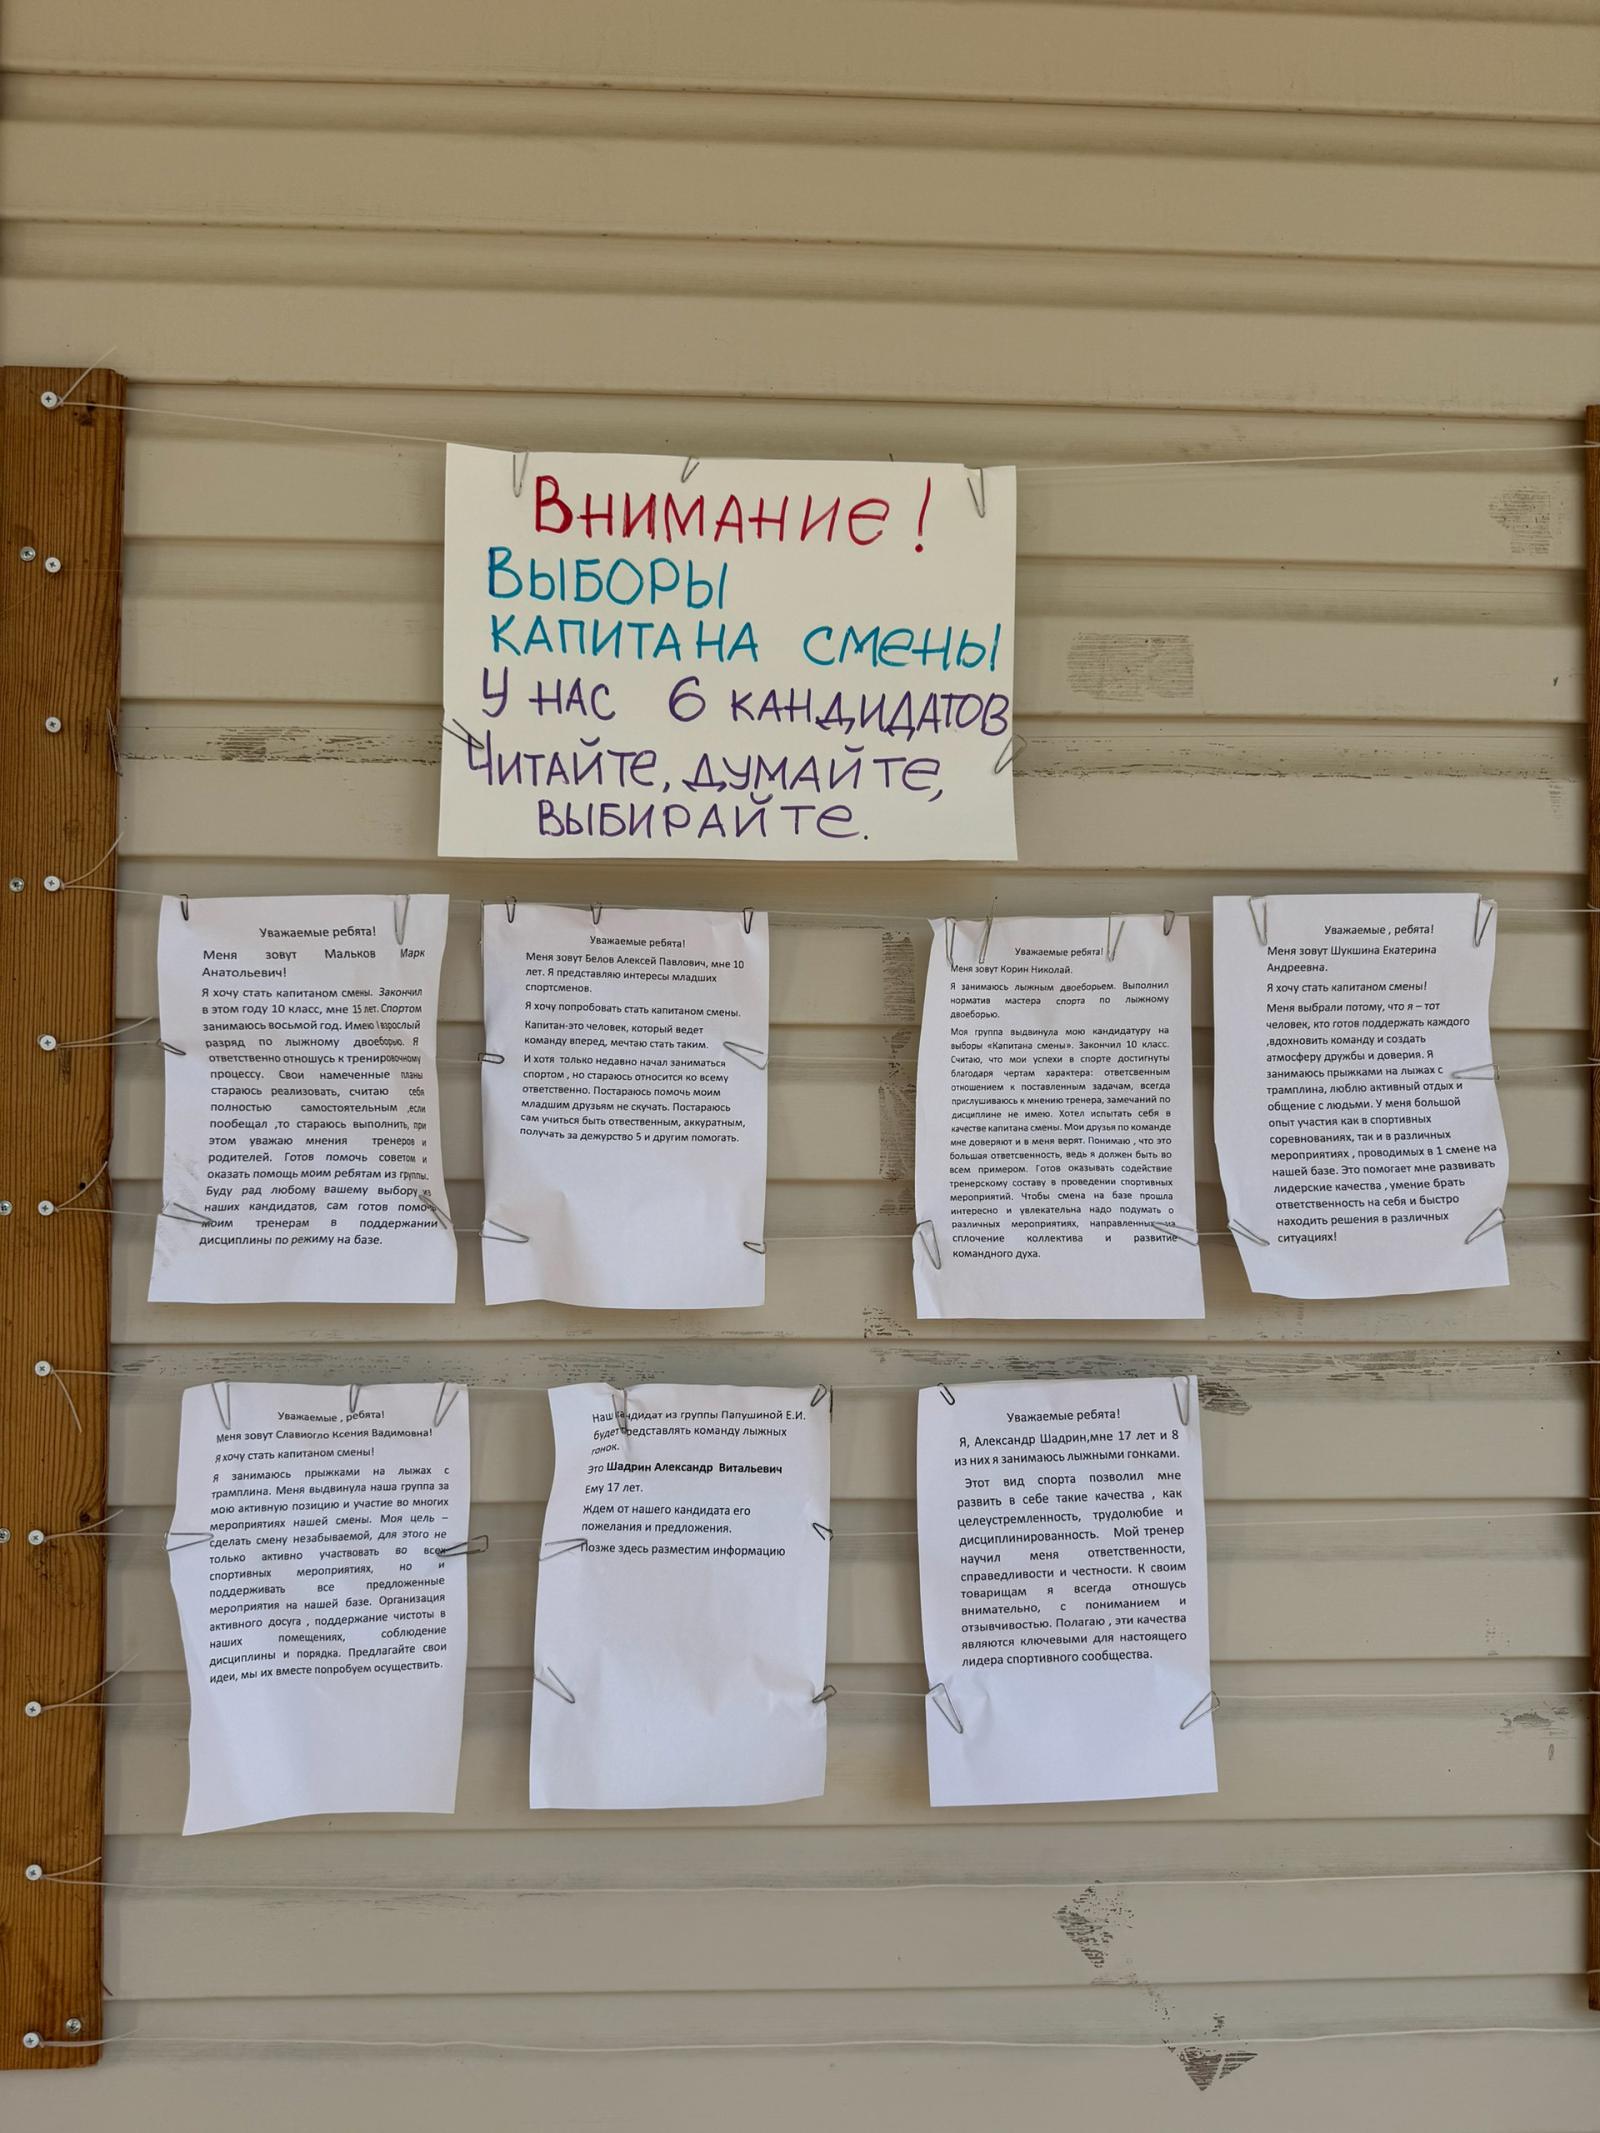 Внимание!
Выборы
капитана смены
У нас 6 кандидатов
Читайте, думайте,
выбирайте.
Уважаемые ребята!
Меня зовут Мальков Марк
Анатольевич!
Я хочу стать капитаном смены. Закончил
в этом году 10 класс, мне 15 лет. Спортом
занимаюсь восьмой год. Имею I взрослый
разряд по лыжному двоеборью. Я
ответственно отношусь к тренировочному
процессу. Свои намеченные планы
стараюсь реализовать, считаю себя
полностью самостоятельным ,если
пообещал ,то стараюсь выполнить, при
этом уважаю мнения тренеров и
родителей. Готов помочь советом и
оказать помощь моим ребятам из группы.
Буду рад любому вашему выбору из
наших кандидатов, сам готов помочь
моим тренерам в поддержании
дисциплины по режиму на базе.
Уважаемые ребята!
Меня зовут Белов Алексей Павлович, мне 10
лет. Я представляю интересы младших
спортсменов.
Я хочу попробовать стать капитаном смены.
Капитан-это человек, который ведет
команду вперед, мечтаю стать таким.
И хотя только недавно начал заниматься
спортом , но стараюсь относится ко всему
ответственно. Постараюсь помочь моим
младшим друзьям не скучать. Постараюсь
сам учиться быть отвественным, аккуратным,
получать за дежурство 5 и другим помогать.
Уважаемые ребята!
Меня зовут Корин Николай.
Я занимаюсь лыжным двоеборьем. Выполнил
норматив мастера спорта по лыжному
двоеборью.
Моя группа выдвинула мою кандидатуру на
выборы «Капитана смены». Закончил 10 класс.
Считаю, что мои успехи в спорте достигнуты
благодаря чертам характера: ответсвенным
отношением к поставленным задачам, всегда
прислушиваюсь к мнению тренера, замечаний по
дисциплине не имею. Хотел испытать себя в
качестве капитана смены. Мои друзья по команде
мне доверяют и в меня верят. Понимаю , что это
большая ответсвенность, ведь я должен быть во
всем примером. Готов оказывать содействие
тренерскому составу в проведении спортивных
мероприятий. Чтобы смена на базе прошла
интересно и увлекательна надо подумать о
различных мероприятиях, направленных на
сплочение коллектива и развитие
командного духа.
Уважаемые , ребята!
Меня зовут Шукшина Екатерина
Андреевна.
Я хочу стать капитаном смены!
Меня выбрали потому, что я – тот
человек, кто готов поддержать каждого
,вдохновить команду и создать
атмосферу дружбы и доверия. Я
занимаюсь прыжками на лыжах с
трамплина, люблю активный отдых и
общение с людьми. У меня большой
опыт участия как в спортивных
соревнованиях, так и в различных
мероприятиях , проводимых в 1 смене на
нашей базе. Это помогает мне развивать
лидерские качества , умение брать
ответственность на себя и быстро
находить решения в различных
ситуациях!
Уважаемые , ребята!
Меня зовут Славиогло Ксения Вадимовна!
Я хочу стать капитаном смены!
Я занимаюсь прыжками на лыжах с
трамплина. Меня выдвинула наша группа за
мою активную позицию и участие во многих
мероприятиях нашей смены. Моя цель –
сделать смену незабываемой, для этого не
только активно участвовать во всех
спортивных мероприятиях, но и
поддерживать все предложенные
мероприятия на нашей базе. Организация
активного досуга , поддержание чистоты в
наших помещениях, соблюдение
дисциплины и порядка. Предлагайте свои
идеи, мы их вместе попробуем осуществить.
Наш кандидат из группы Папушиной Е.И.
будет представлять команду лыжных
гонок.
Это Шадрин Александр Витальевич
Ему 17 лет.
Ждем от нашего кандидата его
пожелания и предложения.
Позже здесь разместим информацию
Уважаемые ребята!
Я, Александр Шадрин,мне 17 лет и 8
из них я занимаюсь лыжными гонками.
Этот вид спорта позволил мне
развить в себе такие качества , как
целеустремленность, трудолюбие и
дисциплинированность. Мой тренер
научил меня ответственности,
справедливости и честности. К своим
товарищам я всегда отношусь
внимательно, с пониманием и
отзывчивостью. Полагаю , эти качества
являются ключевыми для настоящего
лидера спортивного сообщества.